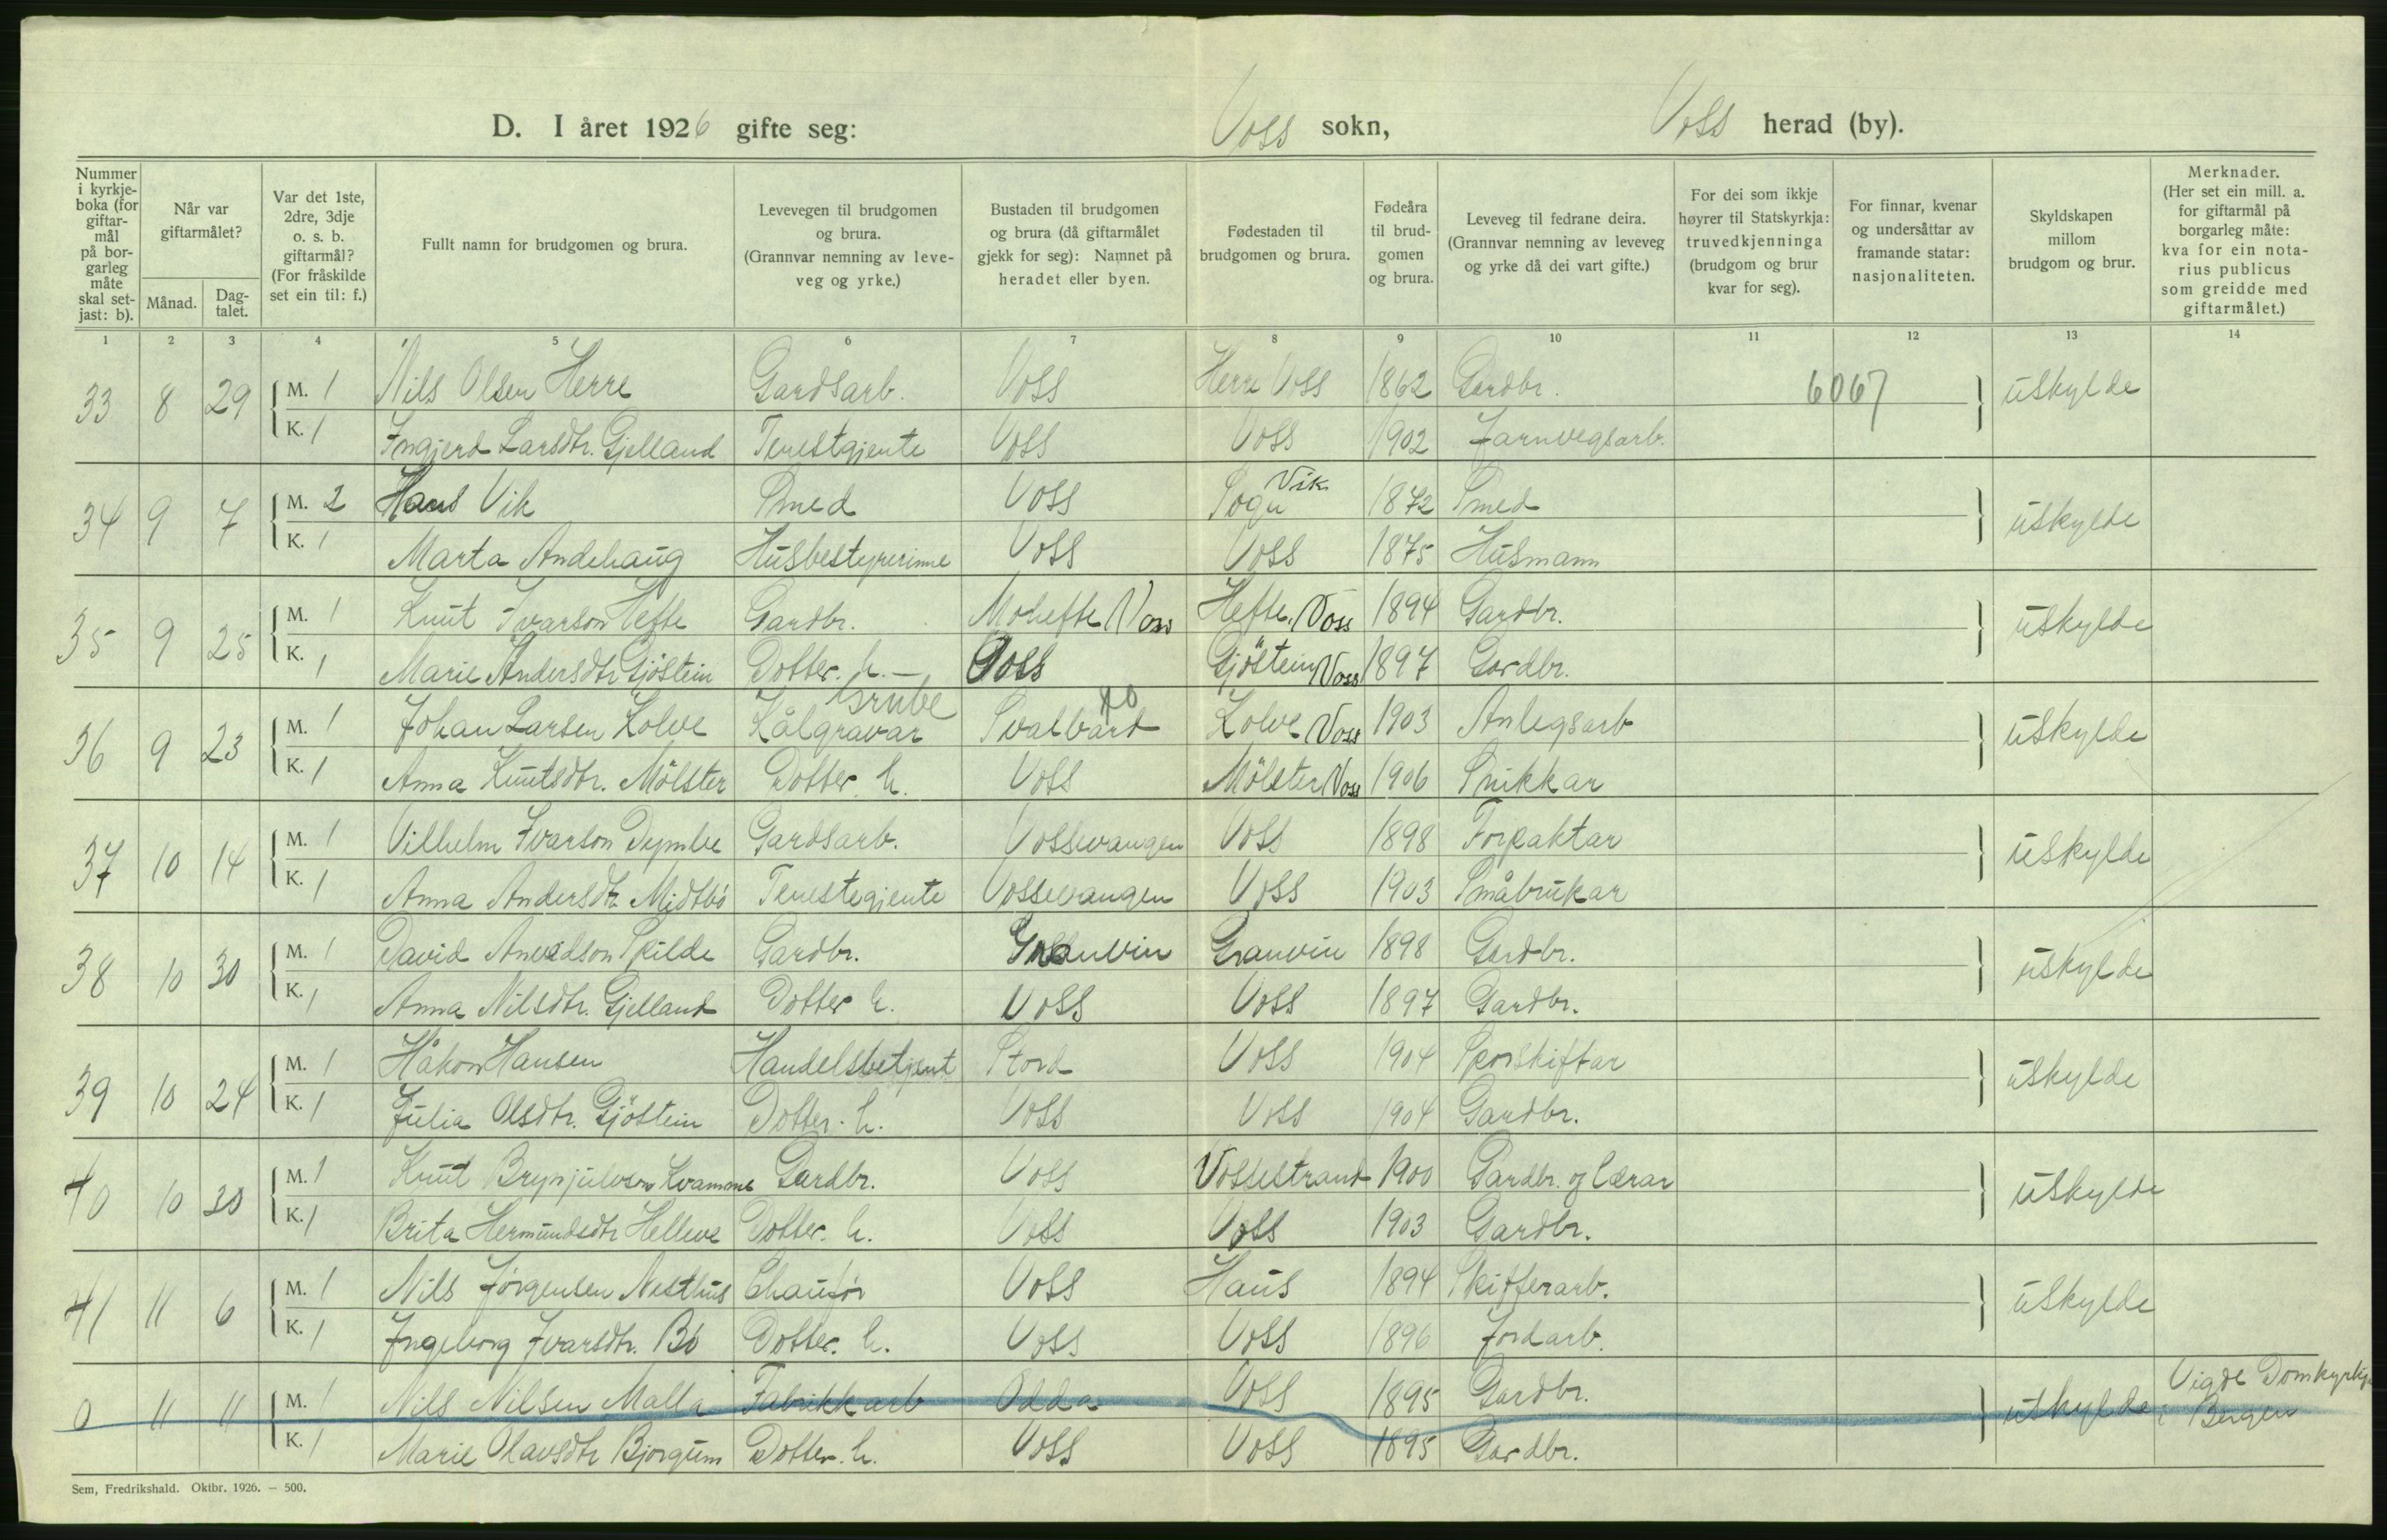 D. I året 1926 gifte seg: Voss sokn, Voss herad (by).
Nummer i kyrkje-boka (for giftar-mål på bor-garleg måte skal set-jast: b).
Når var giftarmålet?
Månad.
Dag-talet.
Var det 1ste, 2dre, 3dje o. s. b. giftarmål? (For fråskilde set ein til: f.)
Fullt namn for brudgomen og brura.
Levevegen til brudgomen og brura. (Grannvar nemning av leve-veg og yrke.)
Bustaden til brudgomen og brura (då giftarmålet gjekk for seg): Namnet på heradet eller byen.
Fødestaden til brudgomen og brura.
Fødeåra til brud-gomen og brura.
Leveveg til fedrane deira. (Grannvar nemning av leveveg og yrke då dei vart gifte.)
For dei som ikkje høyrer til Statskyrkja: truvedkjenninga (brudgom og brur kvar for seg).
For finnar, kvenar og undersåttar av framande statar: nasjonaliteten.
Skyldskapen millom brudgom og brur.
Merknader. (Her set ein mill. a. for giftarmål på borgarleg måte: kva for ein nota-rius publicus som greidde med giftarmålet.)
1 2 3 4 5 6 7 8 9 10 11 12 13 14
33 8 29 M. 1 Nils Olsen Herre Gardsarb. Voss Herre Voss 1862 Gardbr. 6067 uskylde
K. 1 Ingjerd Larsdtr. Gjelland Tenestgjente Voss Voss 1902 Jarnvegsarb.
34 9 7 M. 2 Hans Vik Smed Voss Sogn Vik 1872 Smed uskylde
K. 1 Marta Andehaug Husbestyrerinne Voss Voss 1875 Husmann
35 9 25 M. 1 Knut Ivarson Hefte Gardbr. Mohefte Voss Hefte, Voss 1894 Gardbr. uskylde
K. 1 Marie Andersdtr Gjøstein Dotter h. Voss Gjøstein Voss 1897 Gardbr.
36 9 23 M. 1 Johan Larsen Kolve Kålgravar Grube Svalbard Kolve Voss 1903 Anlegsarb uskylde
K. 1 Anna Knutsdtr. Mölster Dotter h. Voss Mölster Voss 1906 Snikkar
37 10 14 M. 1 Vilhelm Ivarson Dymbe Gardsarb. Vossevangen Voss 1898 Forpaktar uskylde
K. 1 Anna Andersdtr Midtbø Tenestegjente Vossevangen Voss 1903 Småbrukar
38 10 30 M. 1 David Skilde Gardbr. Granvin Granvin 1898 Gardbr. uskylde
K. 1 Anna Nilsdtr. Gjelland Dotter h. Voss Voss 1897 Gardbr.
39 10 24 M. 1 Håkon Hansen Handelsbetjent Stord Voss 1904 Sporskiftar uskylde
K. 1 Julia Olsdtr. Gjöstein Dotter h. Voss Voss 1904 Gardbr.
40 10 30 M. 1 Knut Brynjulvson Kvamme Gardbr. Voss Vossestrand 1900 Gardbr. og lærar uskylde
K. 1 Brita Hermundsdtr Helleve Dotter h. Voss Voss 1903 Gardbr.
41 11 6 M. 1 Nils Jørgensen Nesthus Chaufør Voss Haus 1894 Skifferarb. uskylde
K. 1 Ingeborg Ivarsdtr. Bø Dotter h. Voss Voss 1896 Jordarb.
0 11 11 M. 1 Nils Nilsen Malla Fabrikkarb Odda Voss 1895 Gardbr. uskylde Vigde Domkyrkja i Bergen
K. 1 Marie Olavsdtr Bjørgum Dotter h. Voss Voss 1895 Gardbr.
Sem, Fredrikshald. Oktbr. 1926. — 500.